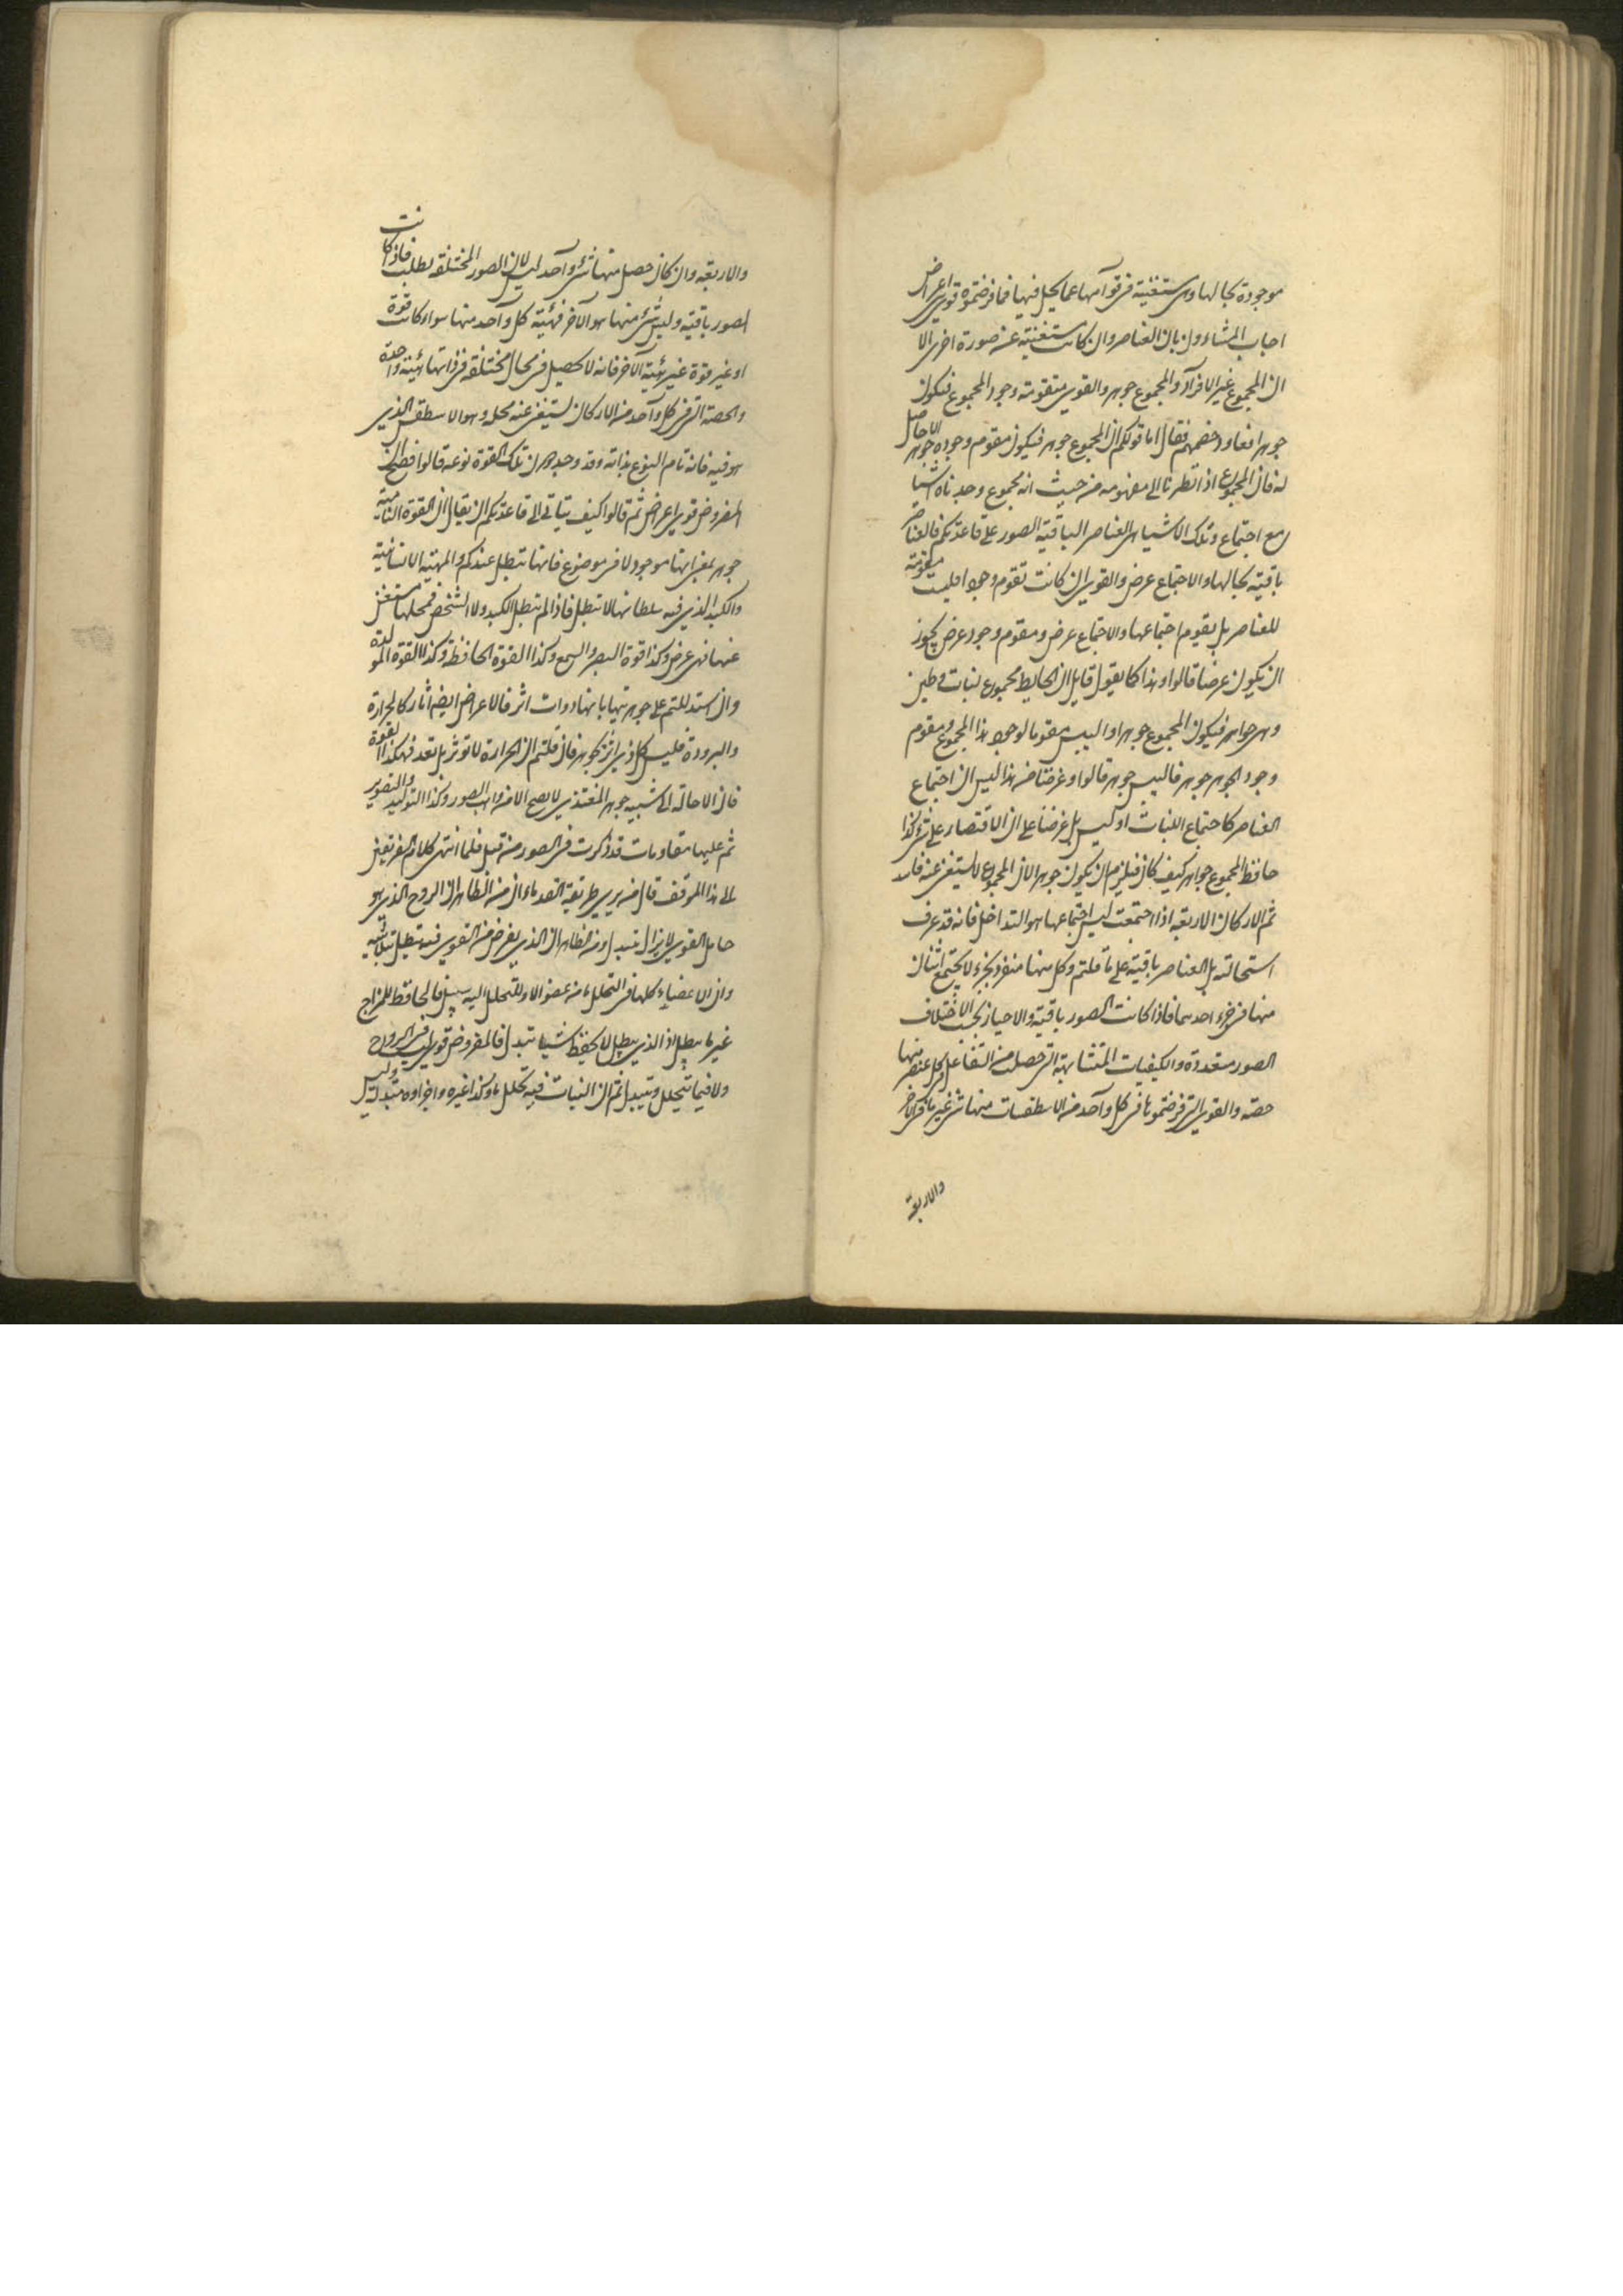 موجودة بحالها وهى مستغنية فى قوامها عما يحل فيها فما فرضتموه قوى اعراض
اجاب المشاءون بان العناصر وان كانت مستغنية عن صورة اخرى الا
ان المجموع غير الافراد والمجموع جوهر والقوى متقومة وجود المجموع فيكون
جوهرا فعاود خصمهم فقال اما قولكم ان المجموع جوهر فيكون مقوم وجوده جوهر لا حاصل
له فان المجموع اذا نظرنا الى مفهومه من حيث انه مجموع وجدناه اشيا
مع اجتماع وتلك الاشياء هى العناصر الباقية الصور على قاعدتكم فالعناصر
باقية بحالها والاجتماع عرض والقوى ان كانت تقوم وجودا فليست مقومة
للعناصر بل يقوم اجتماعها والاجتماع عرض ومقوم وجود عرض يجوز
ان يكون عرضا قالوا وهذا كما يقول قايل ان الحايط مجموع لبنات وطين
وهى جواهر فيكون المجموع جوهرا واليبس مقوما لوجود هذا المجموع ومقوم
وجود الجوهر جوهر فاليبس جوهر قالوا وغرضنا من هذا ليس ان اجتماع
العناصر كاجتماع اللبنات او ليس بل غرضنا على ان الاقتصار على شىء كذا
حافظ المجموع جواهر كيف كان فيلزم ان يكون جوهرا لان المجموع لا يستغنى عنه فاسد
ثم الاركان الاربعة اذا اجتمعت ليس اجتماعها هو التداخل فانه قد عرف
استحالته بل العناصر باقية على ما قلتم وكل منها منفرد بجزء لا يجتمع اثنان
منها فى جزء احدهما فاذا كانت الصور باقية والاحياز بحسب الاختلاف
الصور متعددة والكيفيات المتشابهة التى حصلت من التفاعل فى كل عنصر منها
حصة والقوى التى فرضتموها فى كل واحد من الاسطقسات منها شىء غير ما فى الاخر
والاربعة
والاربعة وان كان حصل منها شىء واحد ليس لان الصور المختلفة بطلت فاذا كانت
الصور باقية وليس شىء منها هو الاخر فهيئة كل واحد منها سواء كانت قوة
او غير قوة غير هيئة الاخر فانه لا يحصل فى محال مختلفة فى ذاتها هيئة واحدة
والحصة التى فى كل واحد من الاركان يستغنى عنه محله وهو الاسطقس الذى
هو فيه فانه تام النوع بذاته وقد وجد دون تلك القوة نوعه قالوا فصح ان
المفروض قوى اعراض ثم قالوا كيف يتاتى الى قاعدتكم ان يقال ان القوة النامية
جوهر بمعنى انها موجود لا فى موضوع فانها تبطل عندكم والمهية الانسانية
والكبد الذى فيه سلطانها لا تبطل فاذا لم تبطل الكبد ولا الشخص فمحلها مستغن
عنها فهى عرض وكذا قوة البصر والسمع وكذا القوة الحافظة وكذا القوة المولدة
وان استدللتم على جوهريتها بانها ذوات اثر فالاعراض ايضا اثار كالحرارة
والبرودة فليس كل ذى اثر بجوهر فان قلتم ان الحرارة لا توثر بل تعد فهكذا القوة
فان الاحالة الى شبيه جوهر المغتذى لا يصح الا من واهب الصور وكذا التوليد والتصوير
ثم عليها مقاومات قد ذكرت فى الصور من قبل فلما انتهى كلام الفريقين
الى هذا الموقف قال من يرى طريقة القدماء ان من الظاهر ان الروح الذى هو
حامل القوى لا يزال يتبدل ومن الظاهر ان الذى يفرض من القوى فيه يبطل بتلاشيه
وان الاعضاء كلها فى التحلل ما من عضو الا وللتحلل اليه سبيل فالحافظ للمزاج
غير ما يبطل اذ الذى يبطل لا يحفظ شيئا يتبدل فالمفروض قوى ليس فى الروح
ولا فيما يتحلل ويتبدل ثم ان النبات فيه تحلل ما وكذا غيره واجزاوه متبدلة وليس